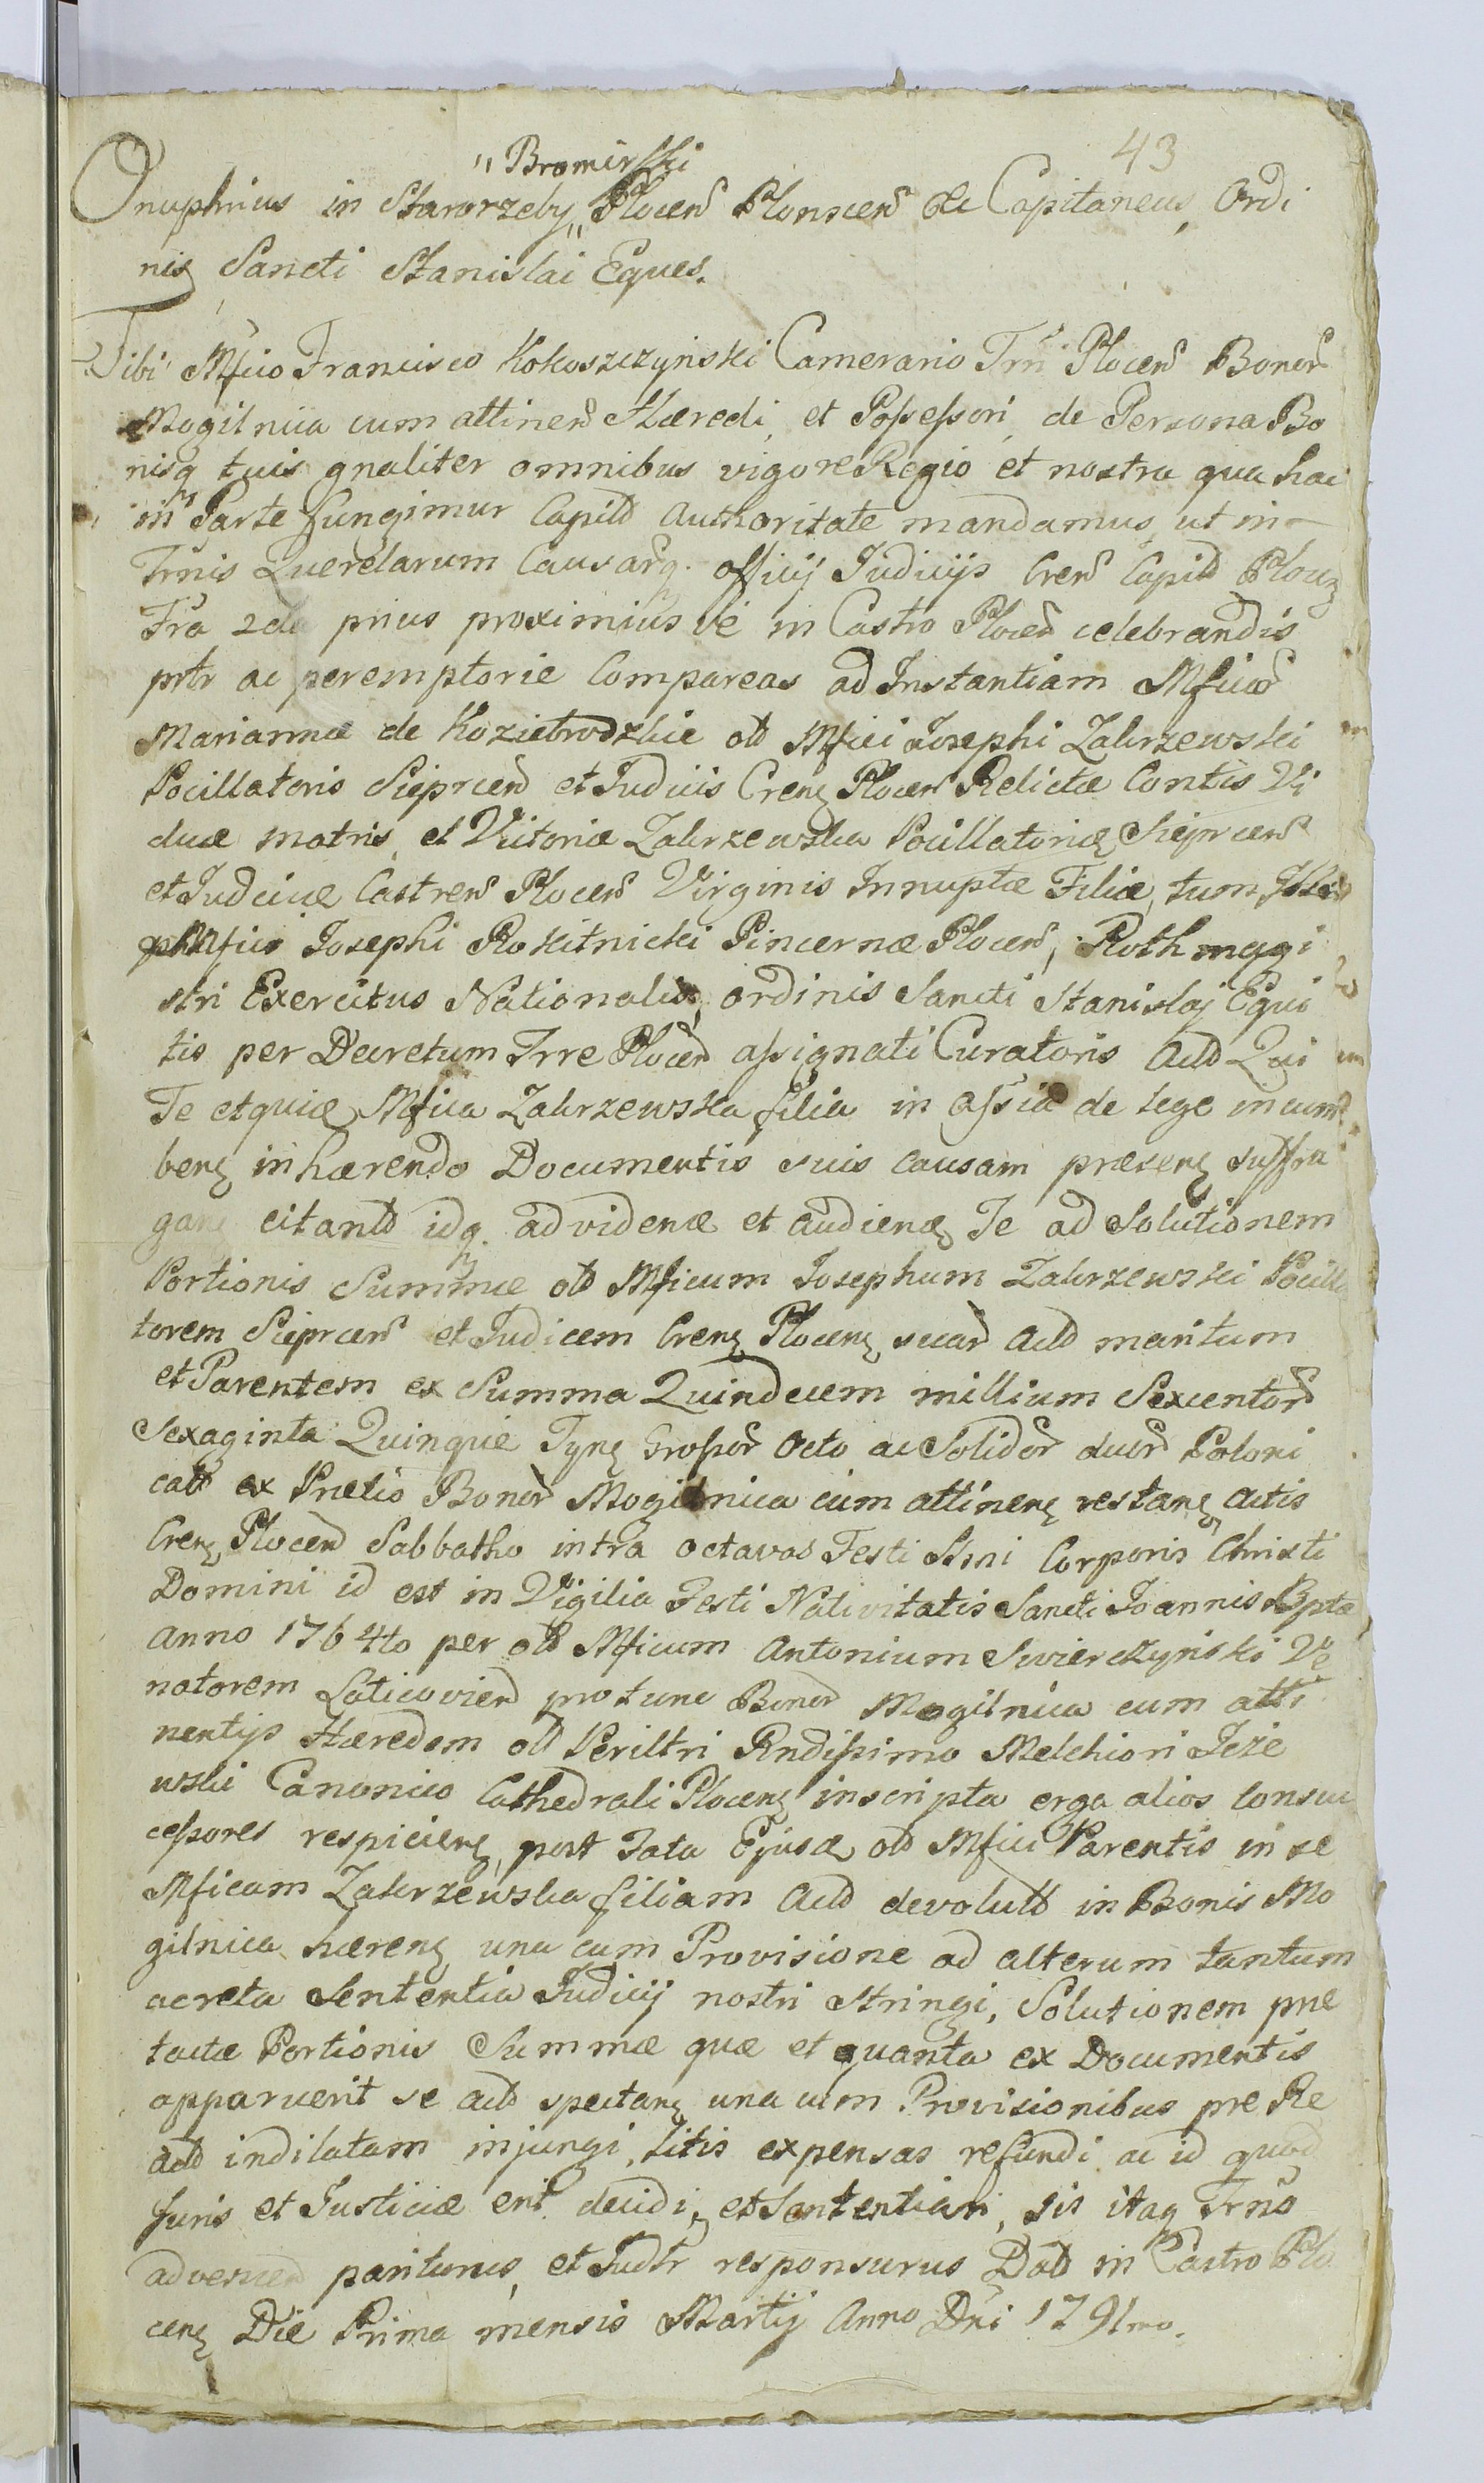 43
"Bromirski
Onuphrius in Starorzeby,, Plocen Plonscen &c Capitaneus, Ordi
nis Sancti Stanislai Eques.
Tibi Mfico Francisco Kokoszczyński Camerario Trrī Plocen Bonor
Mogilnica cum attinen Hæredi, et Possessori, de Persona Bo
nisq tuis gnaliter omnibus vigore Regio et nostra qua hac
in Parte fungimur Capitl Authoritate mandamus, ut in
Trmis Querelarum Causarq. officij Judicijs Cren Capitl Plocen
Fra 2da prius proximius ve in Castro Plocen celebrandis
prtr ac peremptorie Compareas ad Instantiam Mficor
Mariannæ de Koziebrodzkie olb Mfici Josephi Zakrzewski
Pocillatoris Sieprcen et Judicis Cren Plocen Relictæ Contis Vi
duæ matris, et Victoriæ Zakrzewska Pocillatoriæ Sieprcen
et Judiciæ Castren Plocen Virginis Innuptæ Filiæ, tum
Mfici Josephi Rokitnicki Pincernæ Plocen, Rothmagi
stri Exercitus Nationalis, ordinis Sancti Stanislaj Equi
tis per Decretum Trre Plocen assignati Curatoris Actb Qui
Te etquiæ Mfica Zakrzewska filia in assia de lege incum
ben inhærendo Documentis suis causam præsen suffra
gan citantb idq. ad viden et audien Te ad Solutionem
Portionis Summæ olb Mficum Josephum Zakrzewski Pocilla
torem Sieprcen et Judicem Cren Plocen, suar Actb maritum
et Parentem ex Summa Quindecem millium Sexcentor
Sexaginta Quinque Tyn Grossor Octo ac Solidor duor Poloni
calb ex Pretio Bonor Mogilnica cum attinen restan actis
Cren Plocen Sabbatho intra octavas Festi Ssmi Corporis Christi
Domini id est in Vigilia Festi Nativitatis Sancti Joannis Bptæ
Anno 1764to per olb Mficum Antonium Swierczyński Ve
natorem Laticovien pro tunc Bonor Mogilnica cum atti
nentijs Hæredem olb Perilltri Rndissimo Melchiori Jeże
wski Canonico Cathedrali Plocen inscripta erga alios Consuc
cessores respicien, post Fata Ejusd olb Mfici Parentis in se
Mficam Zakrzewska filiam Actb devolutb in Bonis Mo
gilnica hæren una cum Provisione ad alterum tantum
acreta Sententia Judicij nostri Stringi, Solutionem præ
tactæ Portionis Summæ quæ et quanta ex Documentis
apparuerit se actb spectan una cum Provisionibus pre Re
Actb indilatam injungi, Litis expensas refundi ac id quod
Juris et Justiciæ erit decidi, et Sententiari, sis itaq Trno
advenien pariturus, et Judtr responsurus Datb in Castro Plo
cen Die Prima mensis Martij Anno Dni 1791mo.